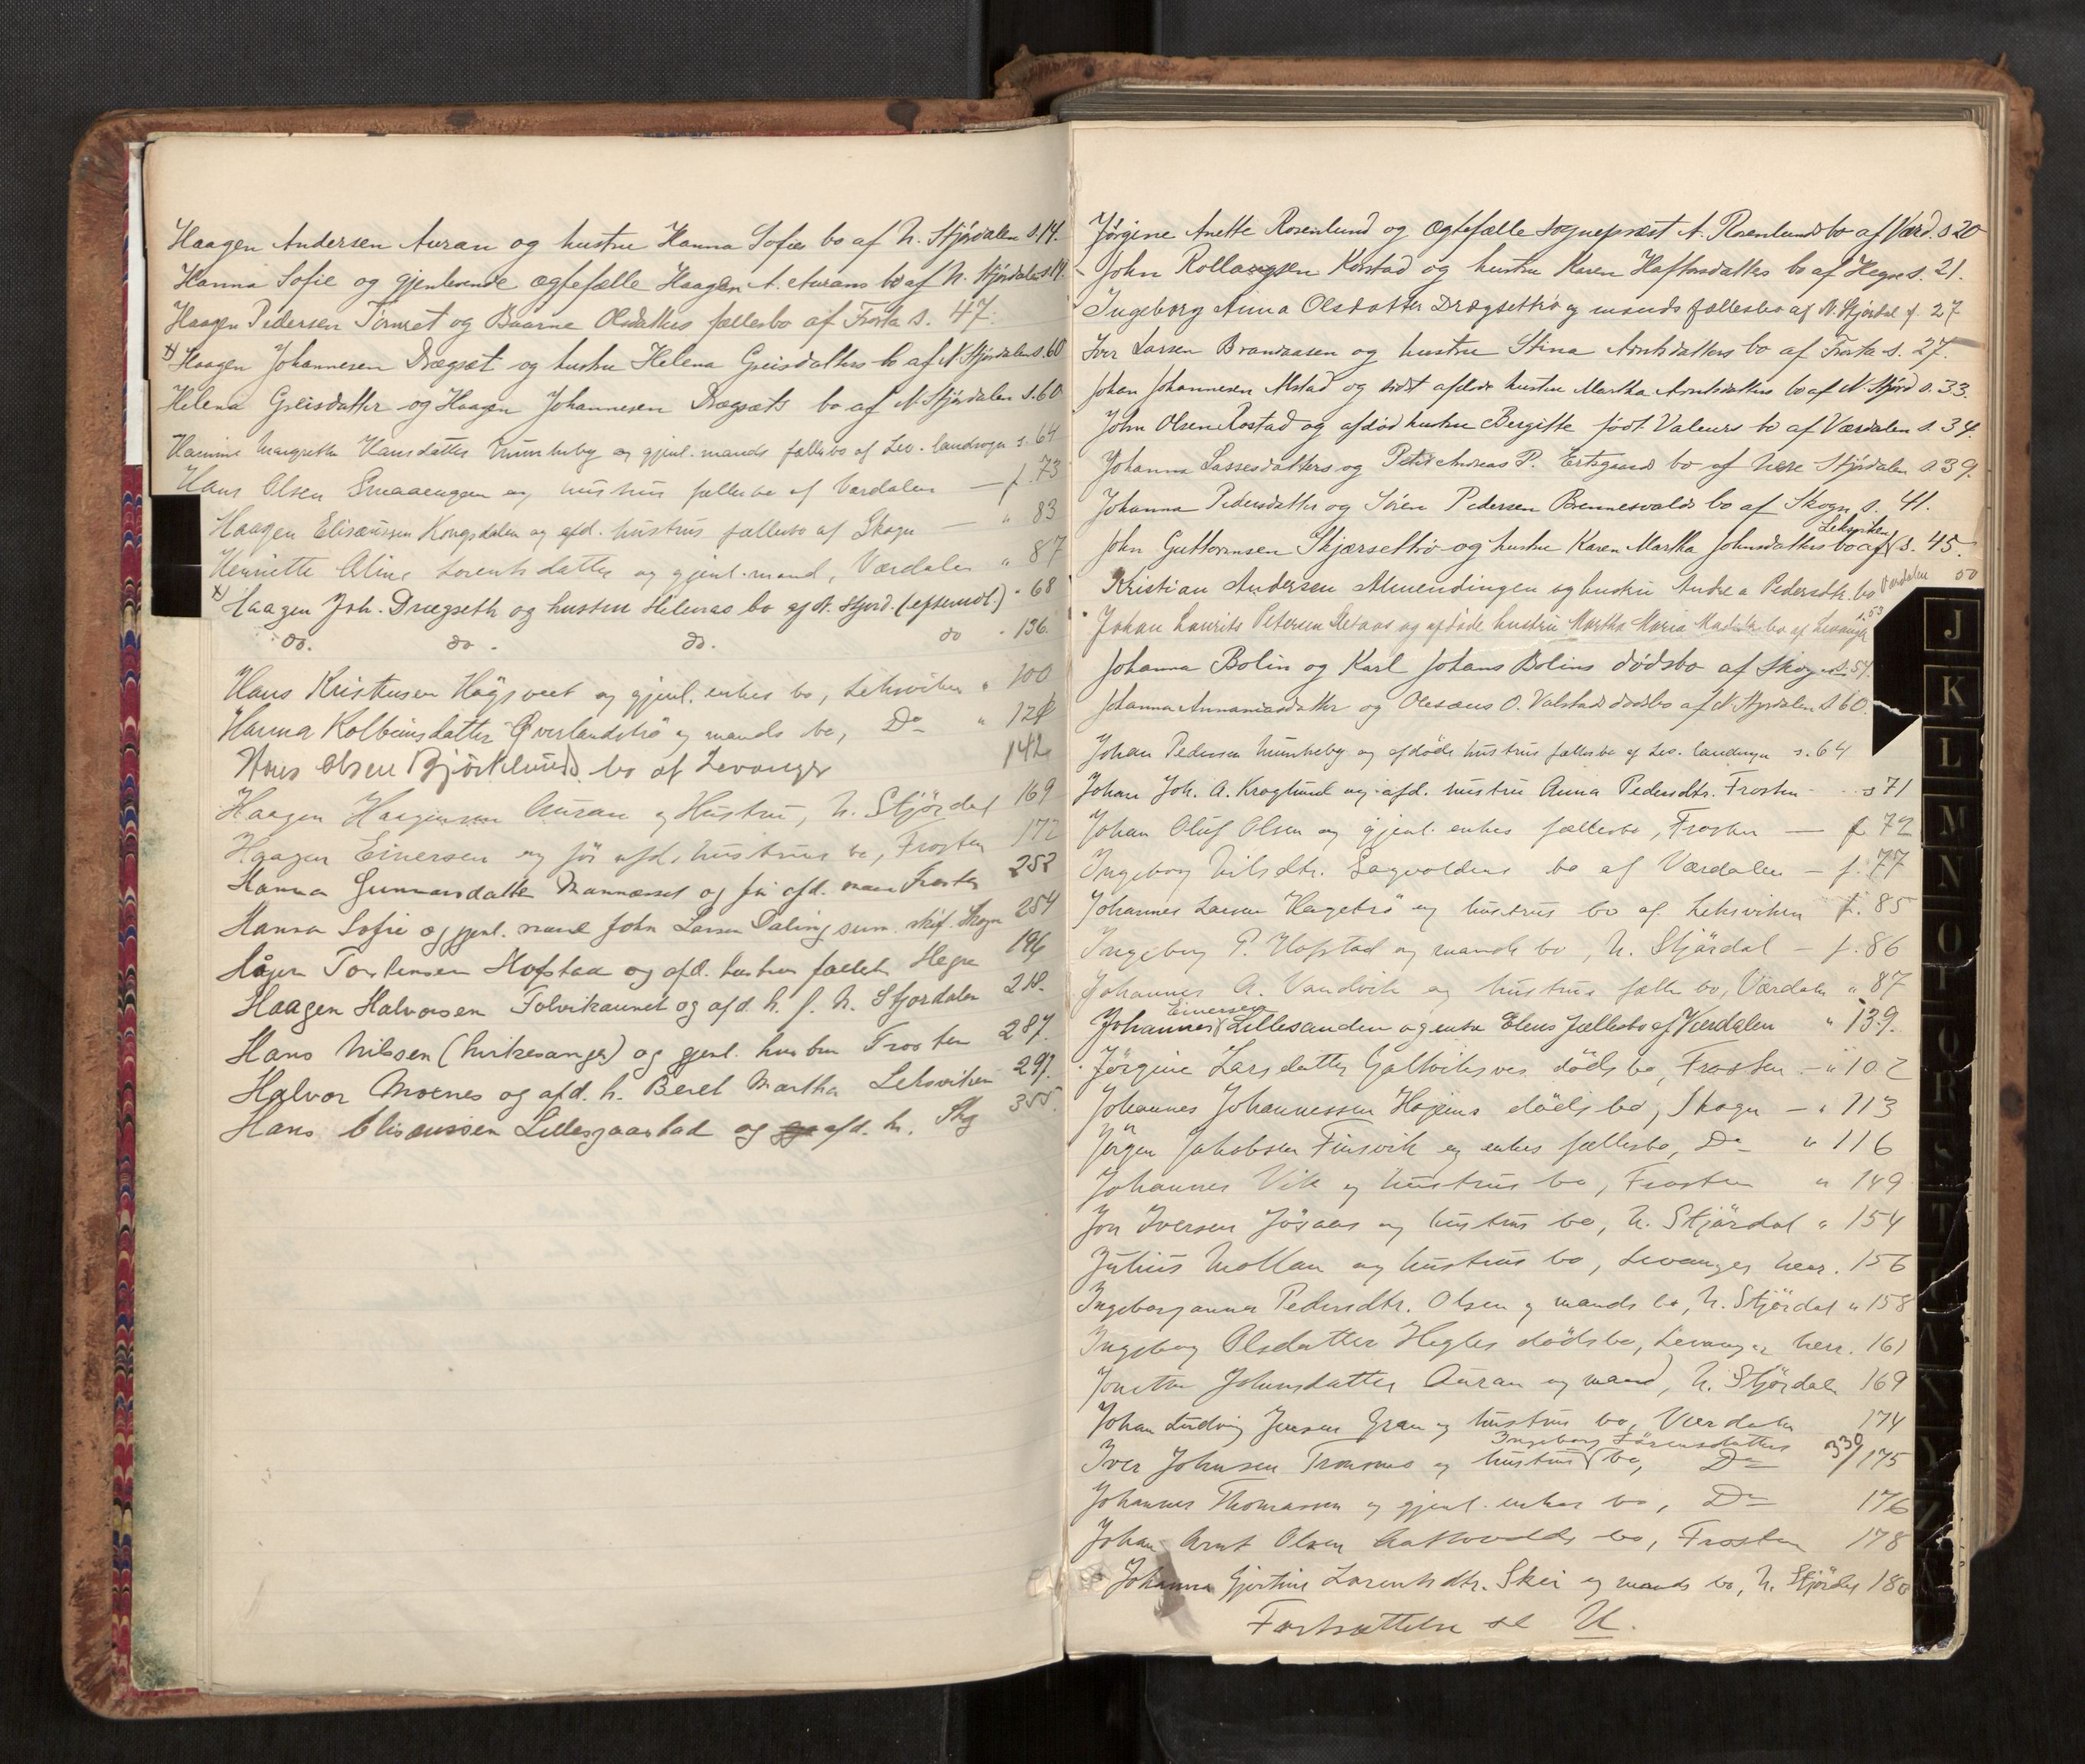 Haagen Andersen Auran og hustru Hanna Sofies bo af N. Stjördalen s. 14.
Hanna Sofie og gjenlevende ægtefælle Haagen A. Aurans bo af N. Stjördalen s. 14
Haagen Pedersen og Baarne Olsdatters fællesbo af Frosta s. 47.
x) Haagen Johannesen Drægset og hustru Helena Greisdatters bo af N. Stjördalen s. 60
Helena Greisdatter og Haagen Johannesen Drægsets bo af N. Stjördalen s. 60
Margrethe Hansdatter Munkeby og gjenl. mands fællesbo af Lev. landsogn s. 64
Hans Olsen Smaaengen og hustrus fællesbo af Værdalen — f. 73
Haagen Elisæussen Kongsdalen og afd. hustrus fællesbo af Skogn — " 83
Henriette Oline Lorentsdatter og gjenl. mand, Værdalen " 87
x) Haagen Joh. Drægseth og hustru Helenas bo af N. Stjord. (efterudl.) " 68
do. do. do. do " 136
Hans Kristensen Högsveet og gjenl. enkes bo, Leksviken " 100
Hanna Kolbeinsdatter Överlandströ og mands bo, Do "
Hans Olsen Björklunds bo af Levanger 142
Haagen Haagensen Auran og Hustru, N. Stjördal 169
Haagen Einersen og för afd. hustrus bo, Frosten 172
Hanna Gunnarsdatter og för afd. man Frosten 252
Hanna Sofie og gjenl. mand John Larsen Daling sum. skif. Skogn 254
Hågen Hofstad og afd. hustrus fællesb. Hegra 196
Haagen Halvorsen Folvikaunet og afd. h. f. N. Stjordalen 218.
Hans Nilssen (Kvikesanger) og gjenl. hustru Frosten 287.
Halvor Moenes og afd. h. Beret Martha Leksviken 291.
Hans Elisæussen Lillesgaarstad og afd. h. Skg 355.
Jörgine Anette Rosenlund og Ægtefælle sogneprest A. Rosenlunds bo af Værd. s 20
John Rollaugsen Körstad og hustru Karen Haftorsdatters bo af Hegre s. 21.
Ingeborg Anna Olsdatter Drægsettrö og mands fællesbo af N. Stjördal f. 27
Iver Larsen Brandaasen og hustru Stina Arntsdatters bo af Frosta s. 27.
Johan Johannesen Alstad og sidst afdøde hustru Martha Arntsdatters bo af N. Stjørd s. 33.
John Olsen Rostad og afdød hustru Bergitte födt Valeurs bo af Værdalen s. 34.
Johanna Lassesdatters og Peter Andreas P. Ertsgaards bo af Nere Stjördalen s 39.
Johanna Pedersdatter og Sören Pedersen Brennesvalds bo af Skogn s. 41.
John Guttormsen Skjærsettrö og hustru Karen Martha Johnsdatters bo af Leksviken s. 45.
Kristian Andersen Almendingen og hustru Andrea Pedersdtr. bo Værdalen 50
Johan Laurits Petersen og afdøde hustru Martha Maria bo af Levanger s. 53
Johanna Bolin og Karl Johans Bolins dödsbo af Skogn s. 54.
Johanna Annaniasdatter og Olesæus O. Valstads dødsbo af N. Stjördalen s 60.
Johan Pedersen Munkeby og afdöde hustrus fællesbo af Lev. landsogn s. 64
Johan Joh. A. Kroglund og afd. hustru Anna Pedersdtr. Frosten s 71
Johan Oluf Olsen og gjenl. enkes fællesbo, Frosten — f 72
Ingeborg Nilsdtr. Sagvoldens bo af Værdalen — f. 77
Johannes Larsen Hagetrö og hustrus bo af Leksviken f. 85
Ingeborg P. Hofstad og mands bo, N. Stjördal — f. 86
Johannes A. Vandvik og hustrus fælles bo, Værdalen " 87
Johannes Einersen Lillesanden og enke Elens fællesbo af Værdalen " 139.
Jörgine Larsdatter Galtviksves döds bo, Frosten — " 102
Johannes Johannessen Hojems döds bo, Skogn — " 113
Jörgen Jakobsen Finsvik og enkes fællesbo, Do " 116
Johannes Vik og hustrus bo, Frosten " 149
Jon Iversen Jösaas og hustrus bo, N. Stjördal " 154
Julius Mollan og hustrus bo, Levanger herr. 156
Ingeborganna Pedersdtr. Olsen og mands bo, N. Stjördal " 158
Ingeborg Olsdatter Hegles dödsbo, Levanger herr. 161
Jonetta Johnsdatter Auran og mand, N. Stjördalen 169
Johan Ludvig Jensen Gran og hustrus bo, Værdalen 174
Iver Johnsen Tromsnes og hustrus Ingeborg Sörensdatters bo, Do 330/175
Johannes Thomassen og gjenl. enkes bo, Do 176
Johan Arnt Olsen bo, Frosten 178
Johanna Gjertine Lorentsdtr. Skei og mands bo, N. Stjördal 180
Fortsættelse se U.
J
K
L
M
N
O
P
R
S
T